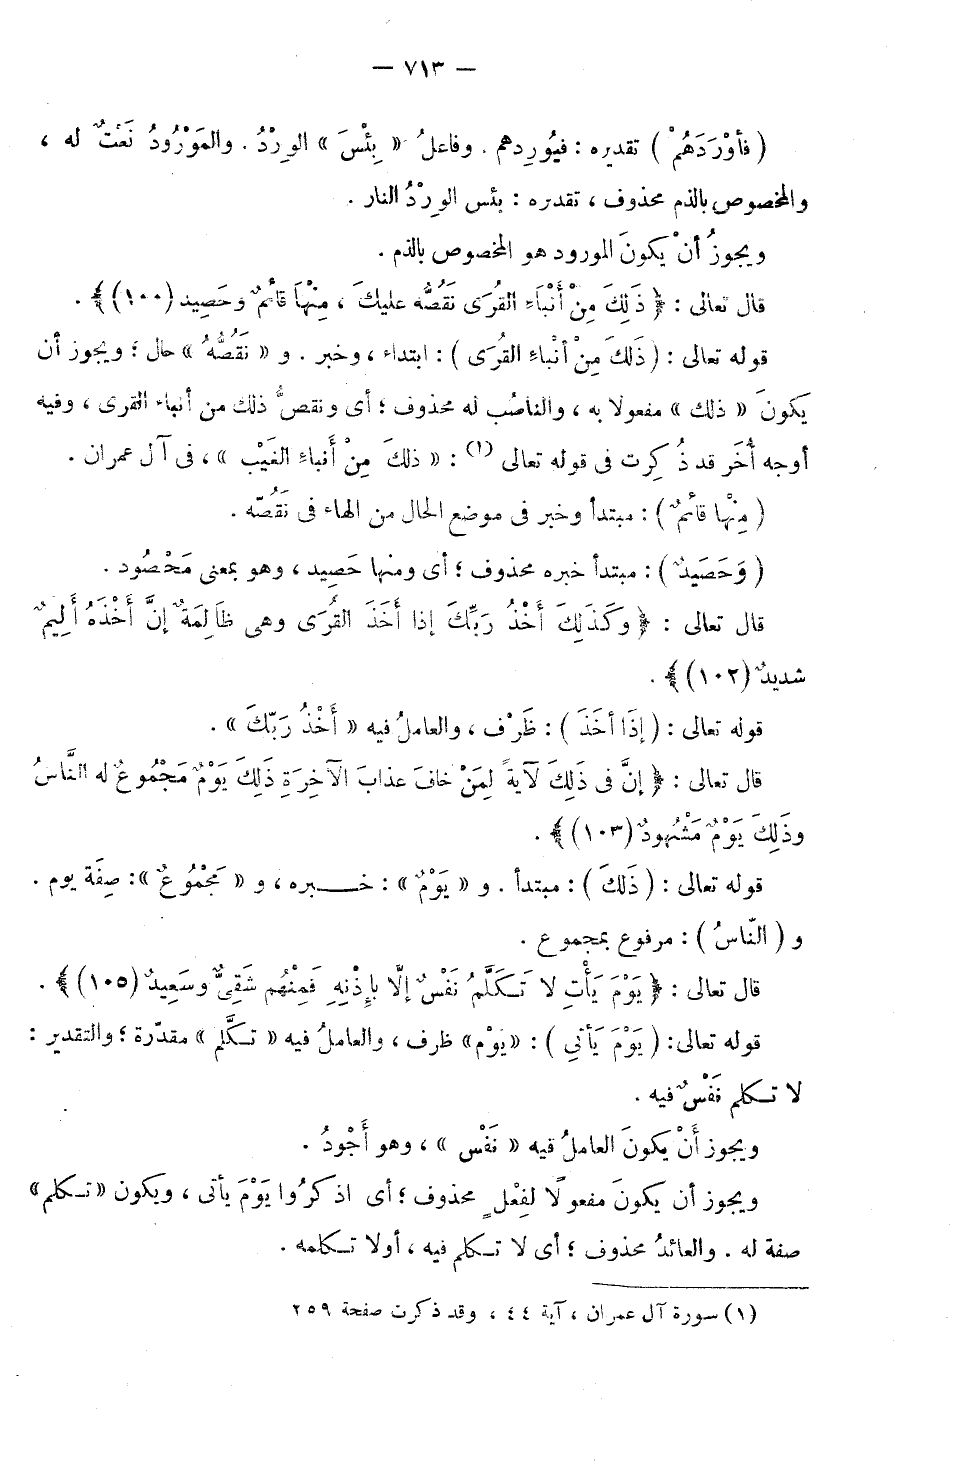 — ٧١٣ —
( فأوْرَدَهُمْ ) تقديره : فيُورِدهم . وفاعلُ « بِئْسَ » الوِرْدُ . والمَوْرُودُ نَعْتٌ له ،
والمخصوص بالذم محذوف ، تقديره : بئس الوِرْدُ النار .
ويجوزُ أنْ يكونَ المورود هو المخصوص بالذم .
قال تعالى : ﴿ ذَلِكَ مِنْ أَنْبَاءِ القُرَى نَقُصُّه عليكَ ، مِنْهَا قائمٌ وحَصِيد (١٠٠) ﴾ .
قوله تعالى : ( ذَلكَ مِنْ أنْباءِ القُرَى ) : ابتداء ، وخبر . و « نَقُصُّهُ » حال ؛ ويجوز أن
يكونَ « ذلك » مفعولا به ، والناصُب له محذوف ؛ أى ونقصُّ ذلك من أنباء القرى ، وفيه
أوجه أُخَر قد ذُكِرت فى قوله تعالى (١) : « ذلكَ مِنْ أَنباءِ الغَيْبِ » ، فى آل عمران .
( مِنْها قائمٌ ) : مبتدأ وخبر فى موضع الحال من الهاء فى نَقُصّه .
( وَحَصَيدٌ ) : مبتدأ خبره محذوف ؛ أى ومنها حَصِيد ، وهو بمعنى مَحْصُود .
قال تعالى : ﴿ وكَذَلِكَ أَخْذُ رَبِّكَ إذا أَخَذَ القُرَى وهى ظَالِمَةٌ إنَّ أَخْذَهُ أَلِيمٌ
شديدٌ (١٠٢) ﴾ .
قوله تعالى : ( إذَا أخَذَ ) : ظَرْف ، والعاملُ فيه « أَخْذُ رَبّكَ » .
قال تعالى : ﴿ إنَّ فى ذَلِكَ لَآيةً لِمَنْ خافَ عذابَ الآخِرَةِ ذَلِكَ يَوْمٌ مَجْمُوعٌ له النَّاسُ
وذَلِكَ يَوْمٌ مَشْهُودٌ (١٠٣) ﴾ .
قوله تعالى : ( ذَلكَ ) : مبتدأ . و « يَوْمٌ » : خبره ، و « مَجْمُوعٌ » : صِفَة يوم .
و ( النّاسُ ) : مرفوع بمجموع .
قال تعالى : ﴿ يَوْمَ يَأْتِ لا تَكَلَّمُ نَفْسٌ إلّا بإِذْنِهِ فَمِنْهُم شَقِىٌّ وسَعِيدٌ (١٠٥) ﴾ .
قوله تعالى : ( يَوْمَ يَأتى ) : « يوْم » ظرف ، والعاملُ فيه « تكَلَّم » مقدّرة ؛ والتقدير :
لا تكلم نَفْسٌ فيه .
ويجوز أَنْ يكونَ العاملُ فيه « نَفْس » ، وهو أَجْودُ .
ويجوز أن يكونَ مفعولًا لفِعْلٍ محذوف ؛ أى اذكرُوا يَوْمَ يأتى ، ويكون « تكلم »
صفة له . والعائدُ محذوف ؛ أى لا تكلم فيه ، أولا تكلمه .
(١) سورة آل عمران ، آية ٤٤ ، وقد ذكرت صفحة ٢٥٩